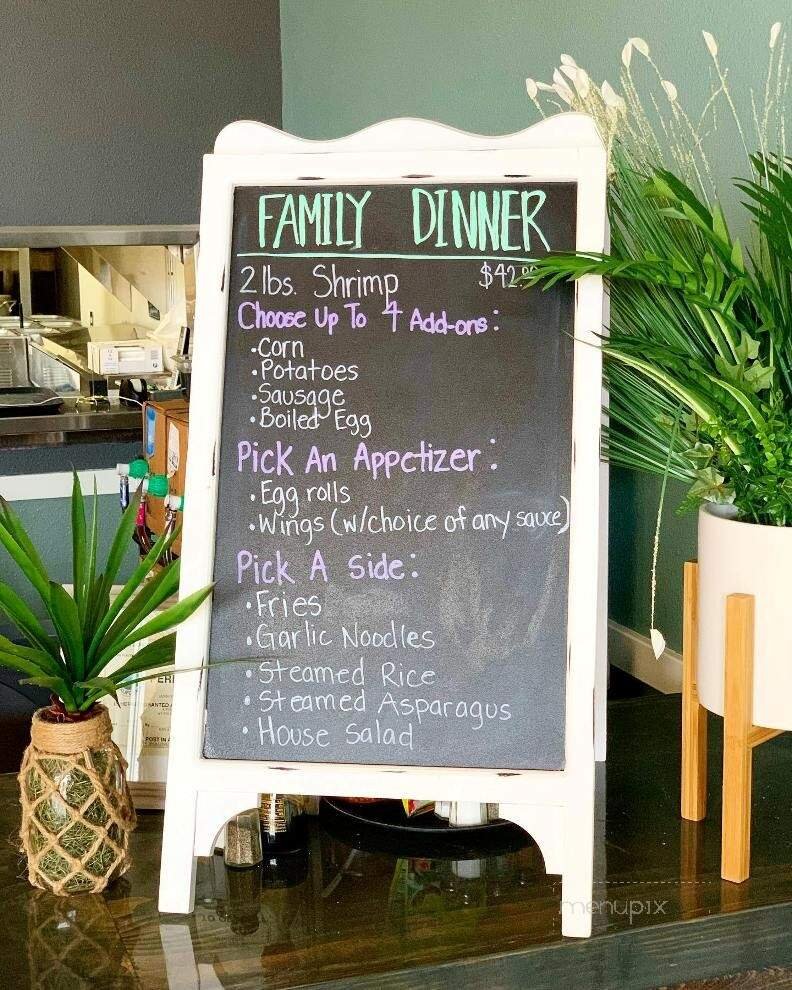 FAMILY DINNER
2 lbs. Shrimp $42.00
Choose Up To 4 Add-ons:
• Corn
• Potatoes
• Sausage
• Boiled Egg
Pick An Appetizer:
• Egg rolls
• Wings (w/choice of any sauce)
Pick A Side:
• Fries
• Garlic Noodles
• Steamed Rice
• Steamed Asparagus
• House Salad
menupix